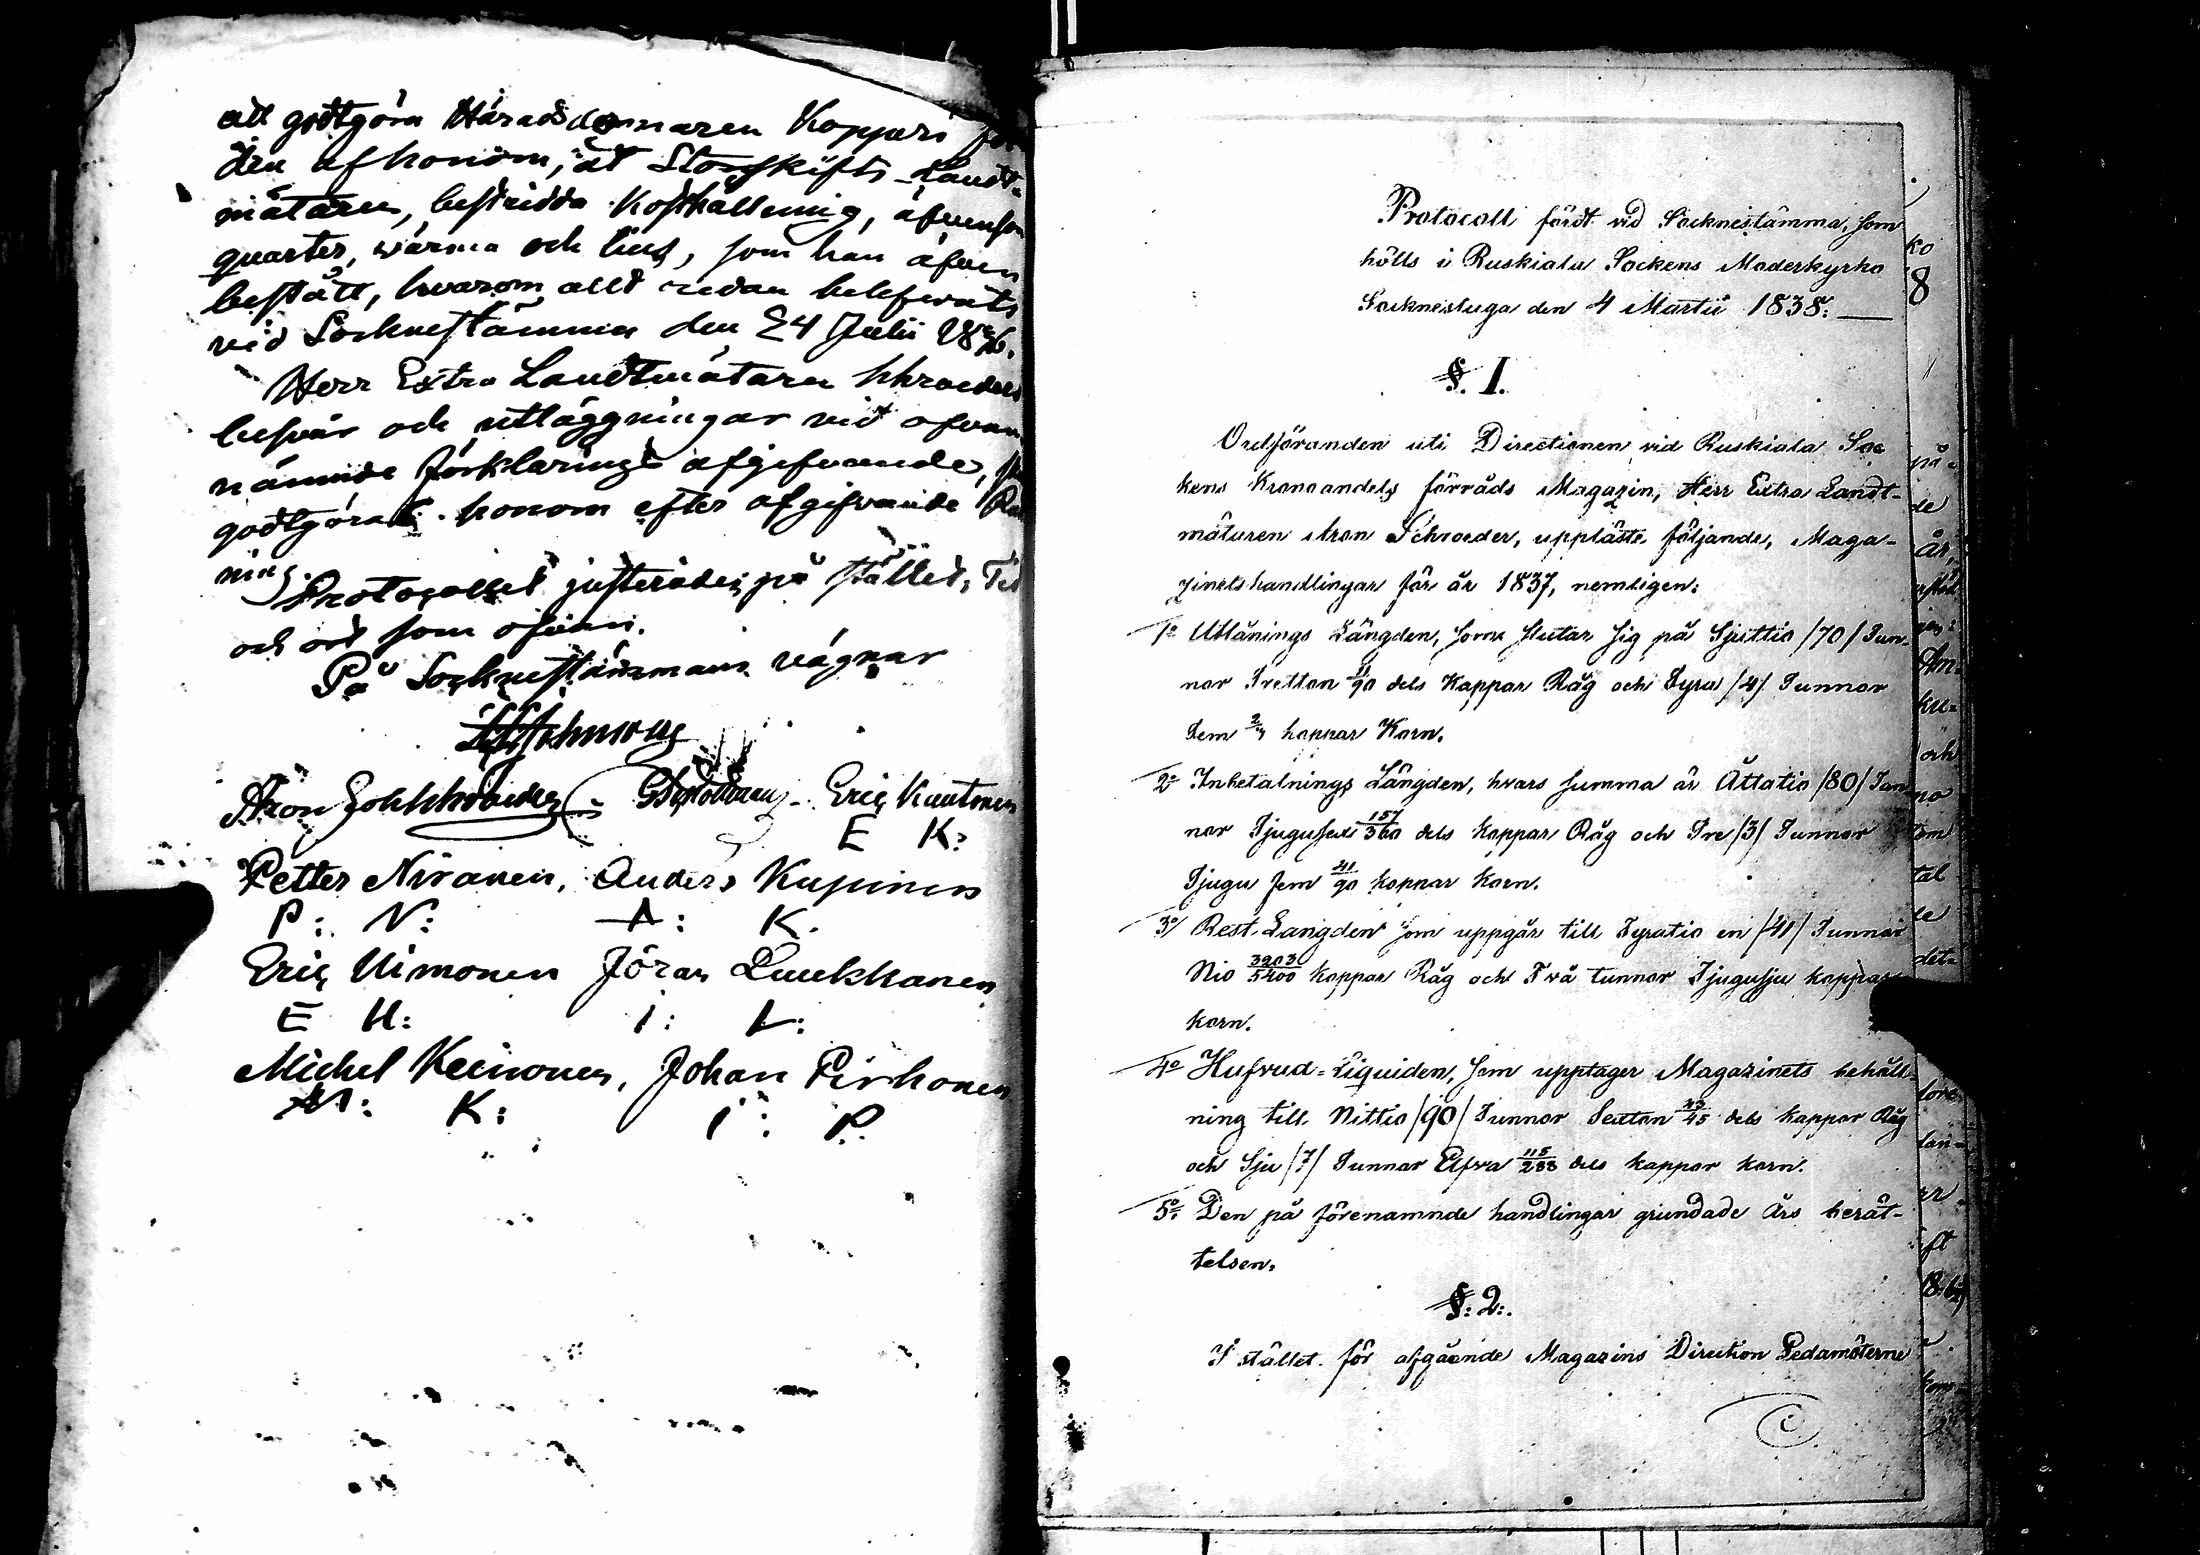 att godtgöra Häradsdomaren Koppari för
den af honom, åt Storskifts-Landt-
mätaren, bestridda Kosthållning, äfvensom
quarter, wärma och ljus, som han äfven
bestått, hvarom allt redan blefvats
vid Sockne stämma den 24 Julii 1836.
Herr Extra Landtmätaren Schroeders
besvär och utläggningar vid ofvan
nämnde förklarings afgifvande,
godtgöres honom efter afgifvande Räk
ning.
Protocollet justerades på stället, Tid
och ort som ofvan.
På Socknestämmans vägnar
Aron Schroeder Eric Kuutonen
E K:
Petter Nivanen, Anders Kupinen
P: N: A: K.
Eric Uimonen Jöran Luukkanen
E U: I: L:
Michel Keinonen, Johan Pirhonen
M: K: I: P.
Protocoll fördt vid Socknestämma, som
hölls i Ruskiala Sockens Moderkyrko
Socknestuga den 4 Martii 1838:
§. 1.
Ordföranden uti Directionen vid Ruskiala Soc
kens Kronoandels förråds Magazin, Herr Extra Landt-
mätaren Aron Schroeder, uppläste följande, Maga-
zinets handlingar för år 1837, nemligen:
1o Utlånings Längden, som slutar sig på Sjuttio /70/ Tun-
nor Tretton 11/90 dels Kappar Råg och Fyra /4/ Tunnor
Fem kappar Korn.
2o Inbetalnings Längden, hvars summa är Åttatio /80/ Tun
nor Tjugusex 157/360 dels kappar Råg och Tre /3/ Tunnor
Tjugu fem 41/90 kappar Korn.
3o/ Rest. Längden som uppgår till Fyratio en /41/ Tunnor
Nio 3203/5400 kappar Råg och Två tunnor Tjugusju kappar
korn.
4o Hufvud-Liquiden, som upptager Magazinets behåll-
ning till Nittio /90/ Tunnor Sexton 43/45 dels kappar Råg
och Sju /7/ Tunnor Elfva 115/288 dels kappar korn.
5o: Den på förenämnde handlingar grundade Års berät-
telsen.
§: 2:.
I stället för afgående Magazins Direction Ledamöterne